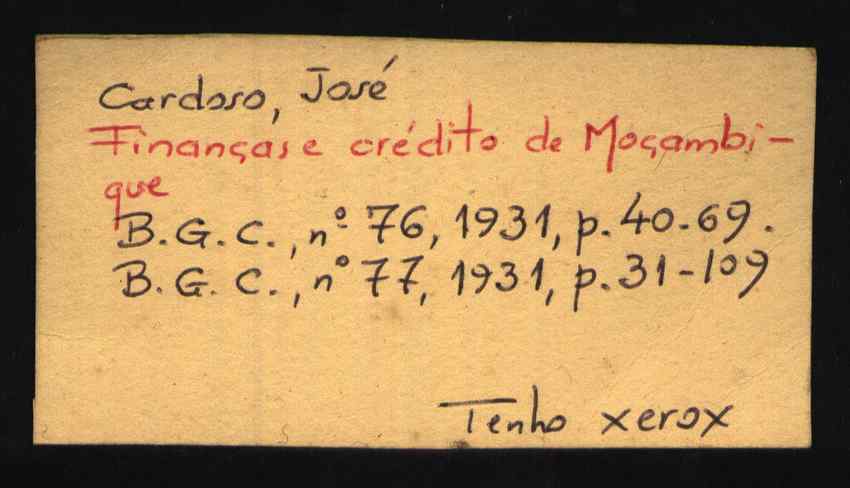 Cardoso, José
Finanças e crédito de Moçambi-
que
B.G.C., nº 76, 1931, p. 40-69.
B.G.C., nº 77, 1931, p. 31-109
Tenho xerox